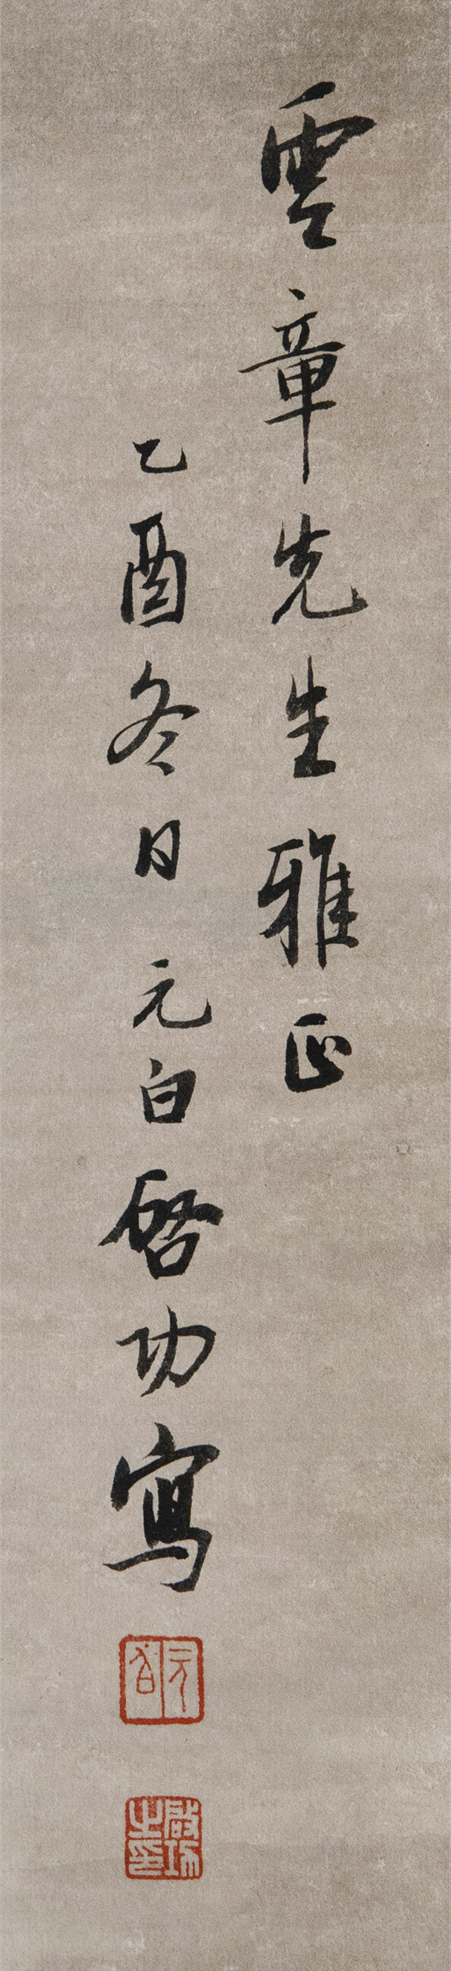 雲章先生雅正
乙酉冬日元白啓功寫
元白
啟功之印